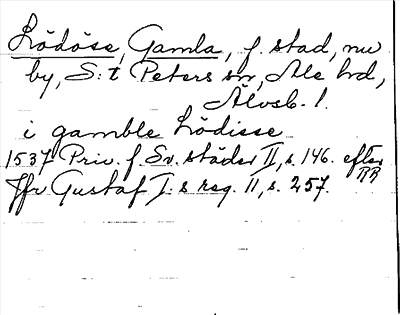 Lödöse, Gamla, f. stad, nu
by, S:t Peters sn, Ale hd,
Älvsb. l.
i gamble Lödisse
1537 Priv. f. Sv. städer II, s. 146. efter
RR
Jfr Gustaf I:s reg. 11, s. 257.